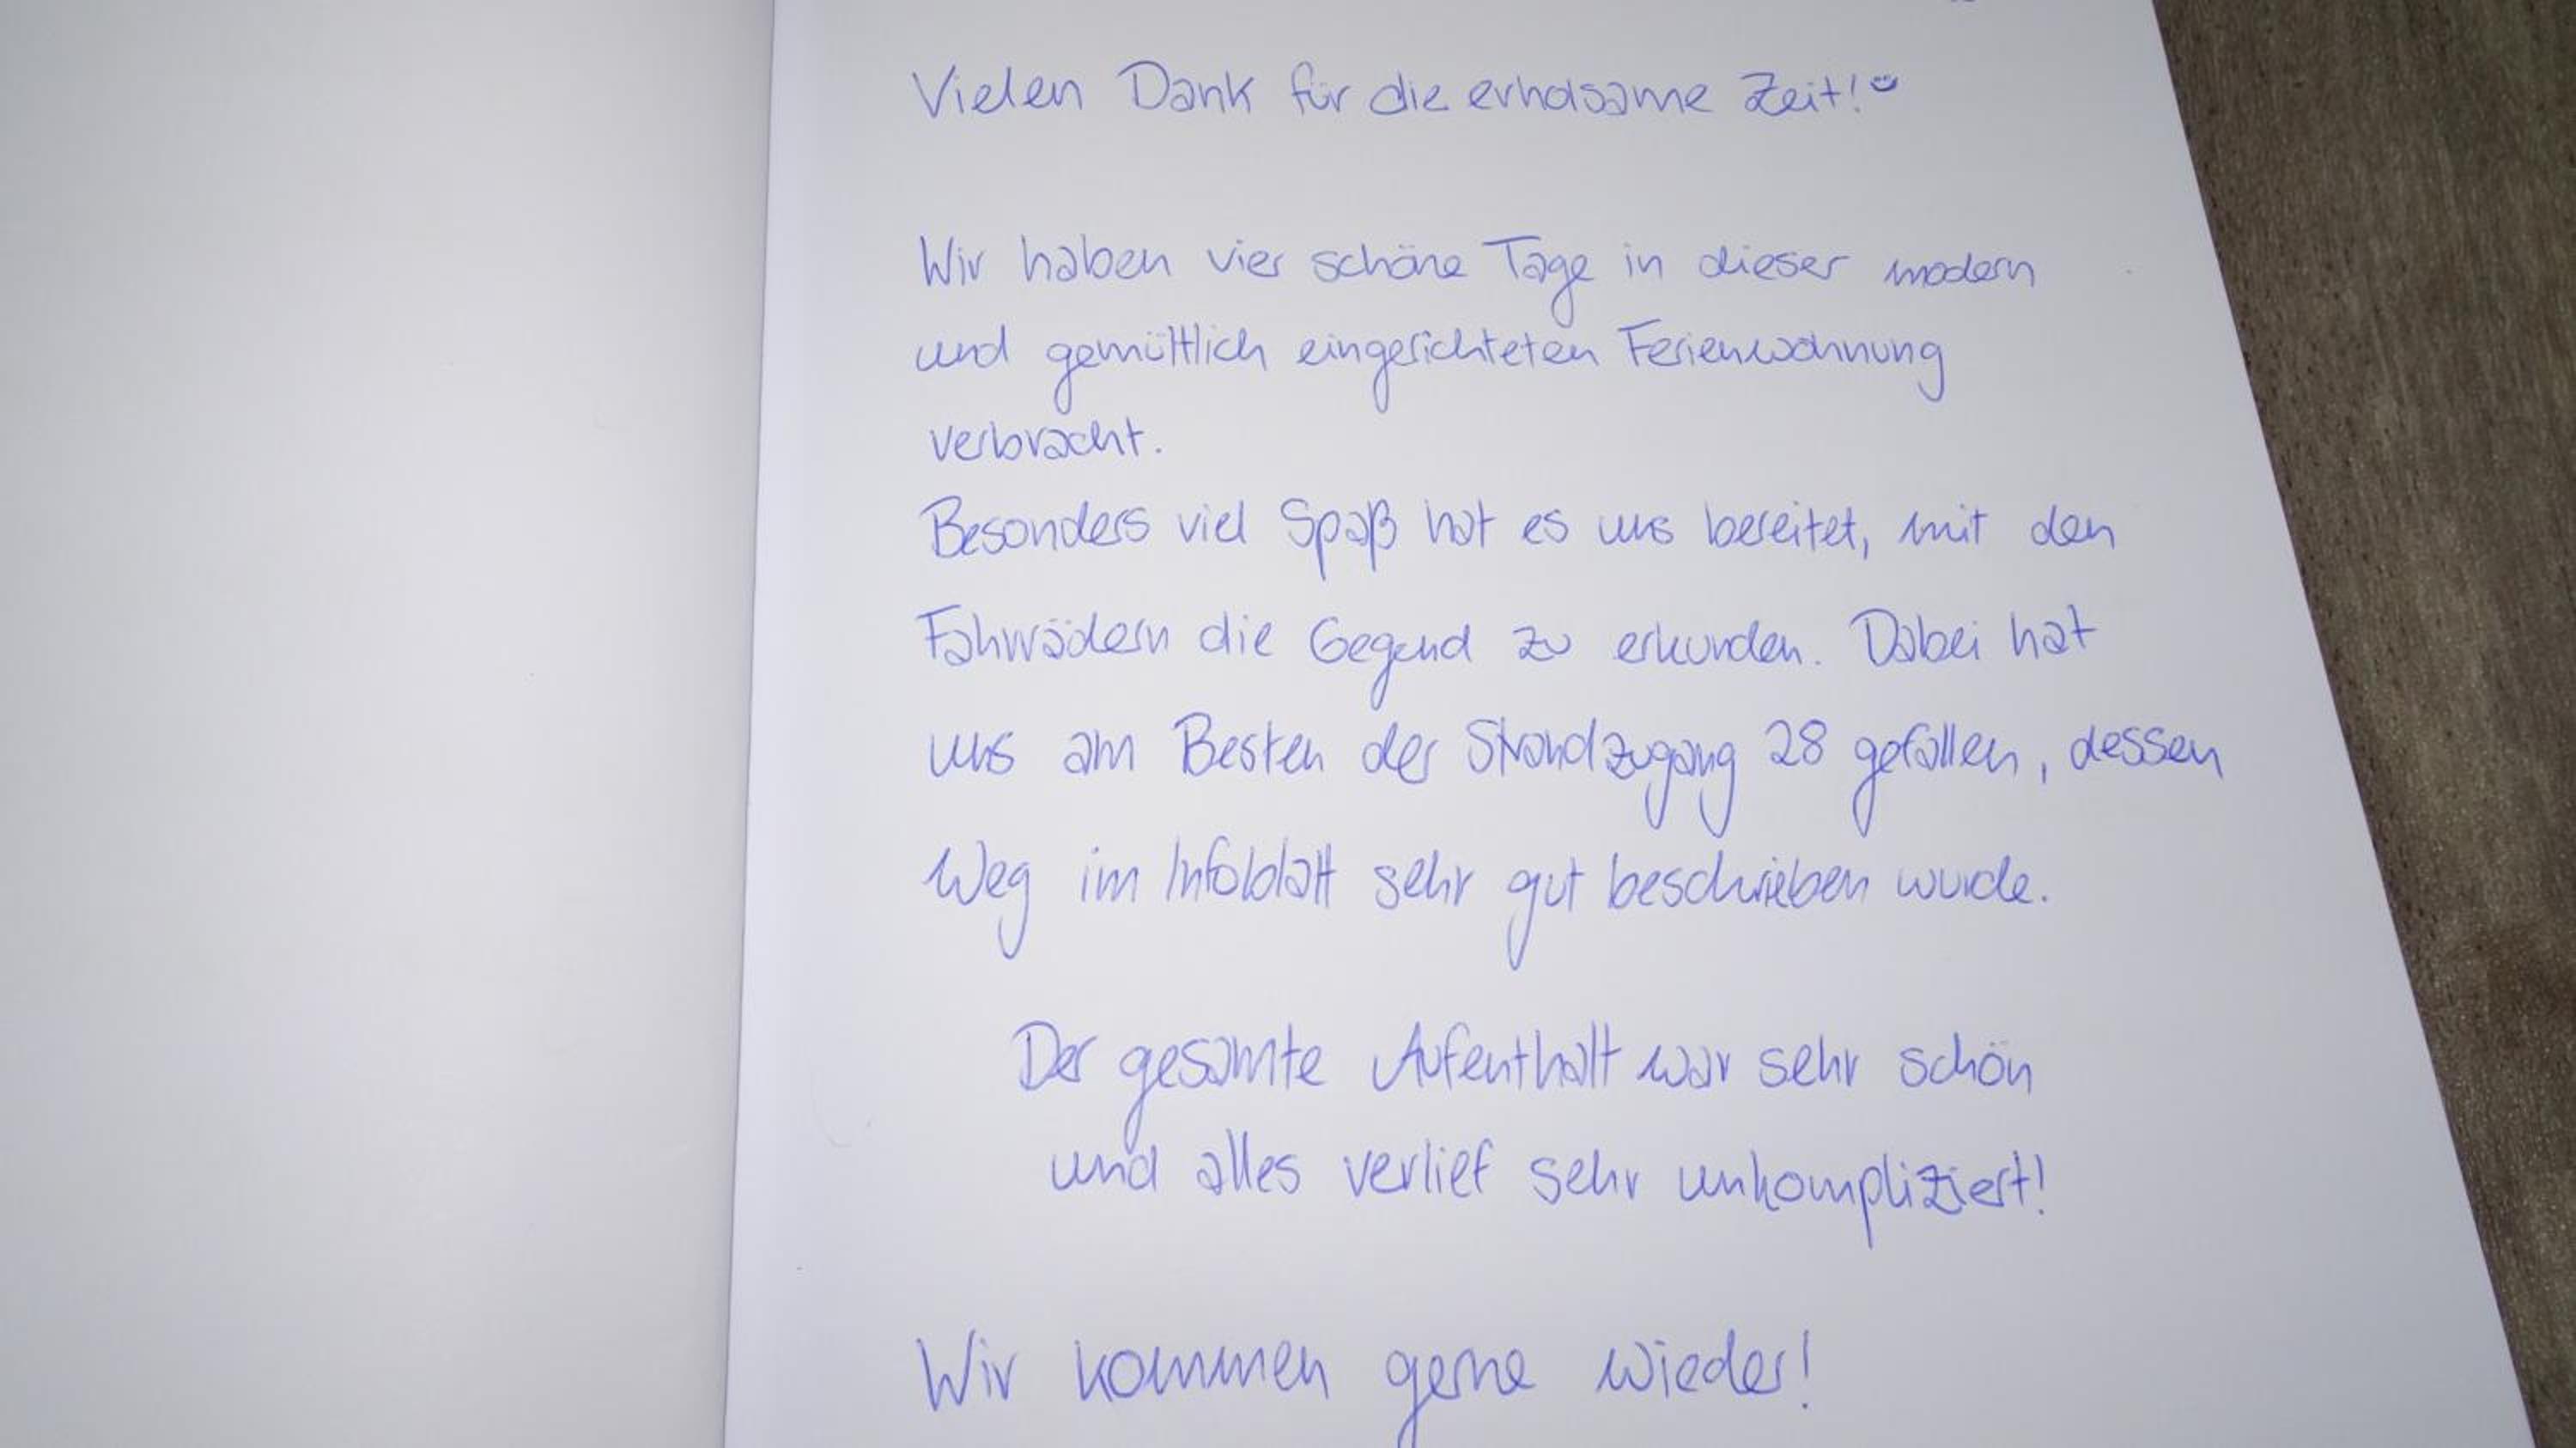 Vielen Dank für die erholsame Zeit!
Wir haben vier schöne Tage in dieser modern
und gemüttlich eingerichteten Ferienwohnung
verbracht.
Besonders viel Spaß hat es uns bereitet, mit den
Fahrrädern die Gegend zu erkunden. Dabei hat
uns am Besten der Strandzugang 28 gefallen, dessen
Weg im Infoblatt sehr gut beschrieben wurde.
Der gesamte Aufenthalt war sehr schön
und alles verlief sehr unkompliziert!
Wir kommen gerne wieder!